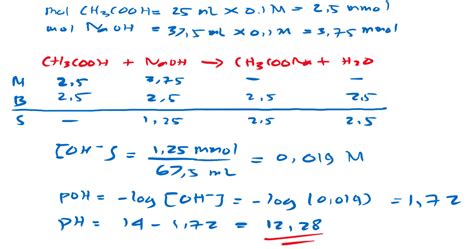 mol CH3COOH = 25 mL × 0,1 M = 2,5 mmol
mol NaOH = 37,5 mL × 0,1 M = 3,75 mmol
CH3COOH + NaOH → CH3COONa + H2O
M 2,5 3,75 — —
B 2,5 2,5 2,5 2,5
S — 1,25 2,5 2,5
[OH⁻] = 1,25 mmol / 67,5 mL = 0,019 M
pOH = -log [OH⁻] = -log (0,019) = 1,72
PH = 14 - 1,72 = 12,28